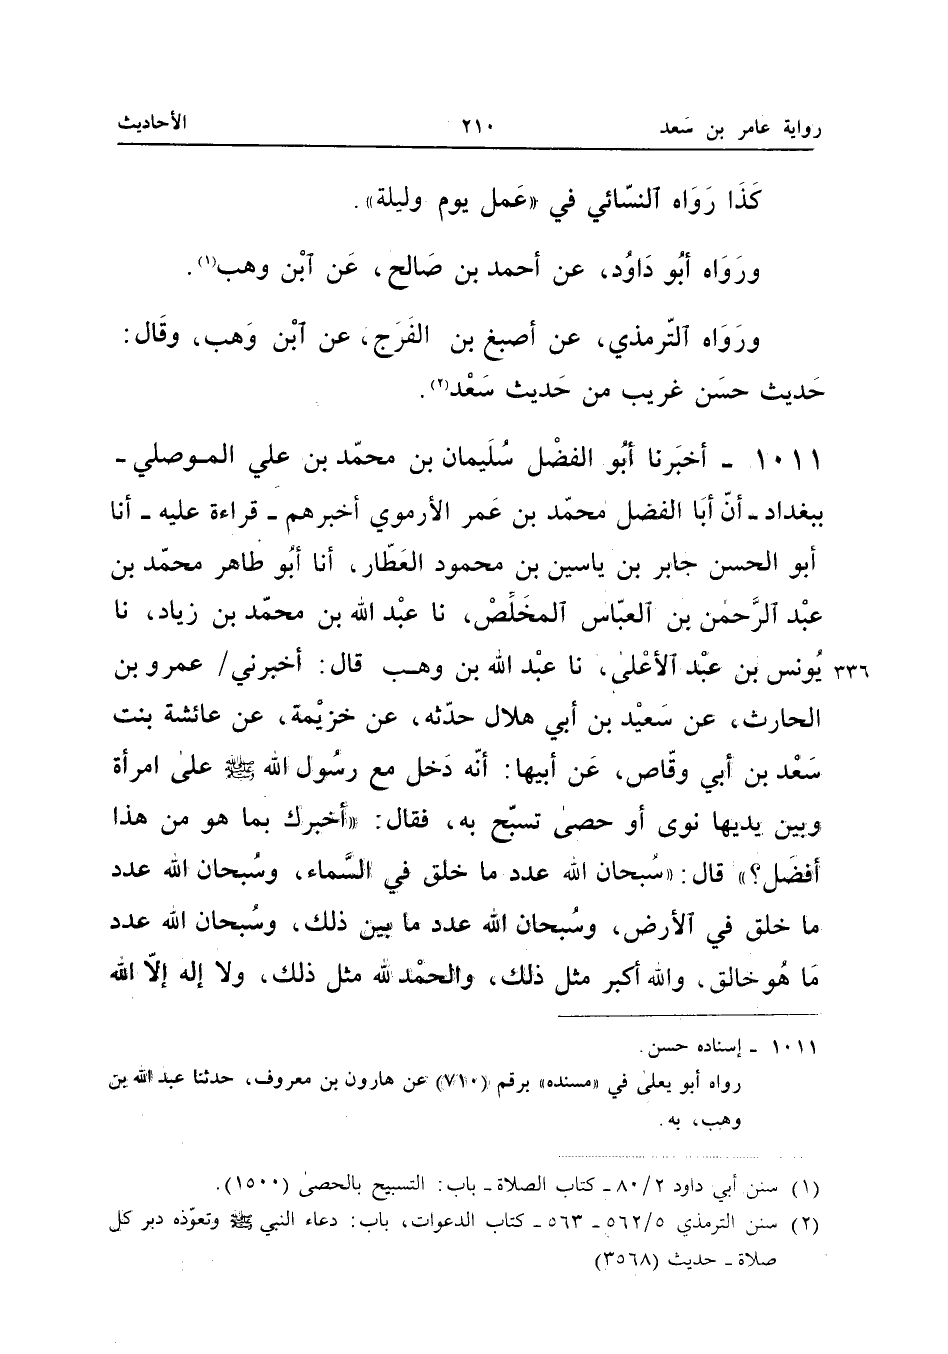 رواية عامر بن سَعد ٢١٠ الأحاديث
كَذَا رَوَاه ٱلنسّائي في «عَمل يوم وليلة».
ورَوَاه أبُو دَاوُد، عن أحمد بن صَالح، عَن ٱبْن وهب(١).
ورَوَاه ٱلتّرمذي، عن أصبغ بن الفَرَج، عن ٱبْن وَهب، وقَال:
حَديث حسَن غريب من حَديث سَعْد(٢).
١٠١١ - أخبَرنا أبُو الفضْل سُلَيمان بن محمّد بن علي الموصلي -
ببغداد - أنّ أبَا الفضل محمّد بن عَمر الأرموي أخبرهم - قراءة عليه - أنا
أبو الحسن جابر بن ياسين بن محمود العَطّار، أنا أبُو طاهر محمّد بن
عبْد ٱلرَّحمٰن بن ٱلعبّاس ٱلمخَلِّصْ، نا عبْد الله بن محمّد بن زياد، نا
يُونس بن عبْد ٱلأعْلىٰ، نا عبْد الله بن وهب قال: أخبرني/ عمرو بن ٣٣٦
الحارث، عن سَعيْد بن أبي هلال حدّثه، عن خزيْمة، عن عائشة بنت
سَعْد بن أبي وقّاص، عَن أبيها: أنّه دَخل مع رسُول الله ﷺ علىٰ امرأة
وبين يديها نوى أو حصىٰ تسبّح به، فقال: «أخبرك بما هو من هذا
أفضَل؟» قال: «سُبحان الله عدد ما خلق في السَّماء، وسُبحان الله عدد
ما خلق في ٱلأرض، وسُبحان الله عدد ما بين ذلك، وسُبحان الله عدد
مَا هُو خالق، والله أكبر مثل ذلك، والحمْد لله مثل ذلك، ولا إله إلّا الله
١٠١١ - إسناده حسن.
رواه أبو يعلىٰ في «مسنده» برقم (٧١٠) عن هارون بن معروف، حدثنا عبد الله بن
وهب، به.
(١) سنن أبي داود ٨٠/٢ - كتاب الصلاة - باب: التسبيح بالحصىٰ (١٥٠٠).
(٢) سنن الترمذي ٥٦٢/٥ - ٥٦٣ - كتاب الدعوات، باب: دعاء النبي ﷺ وتعوّذه دبر كل
صلاة - حديث (٣٥٦٨)